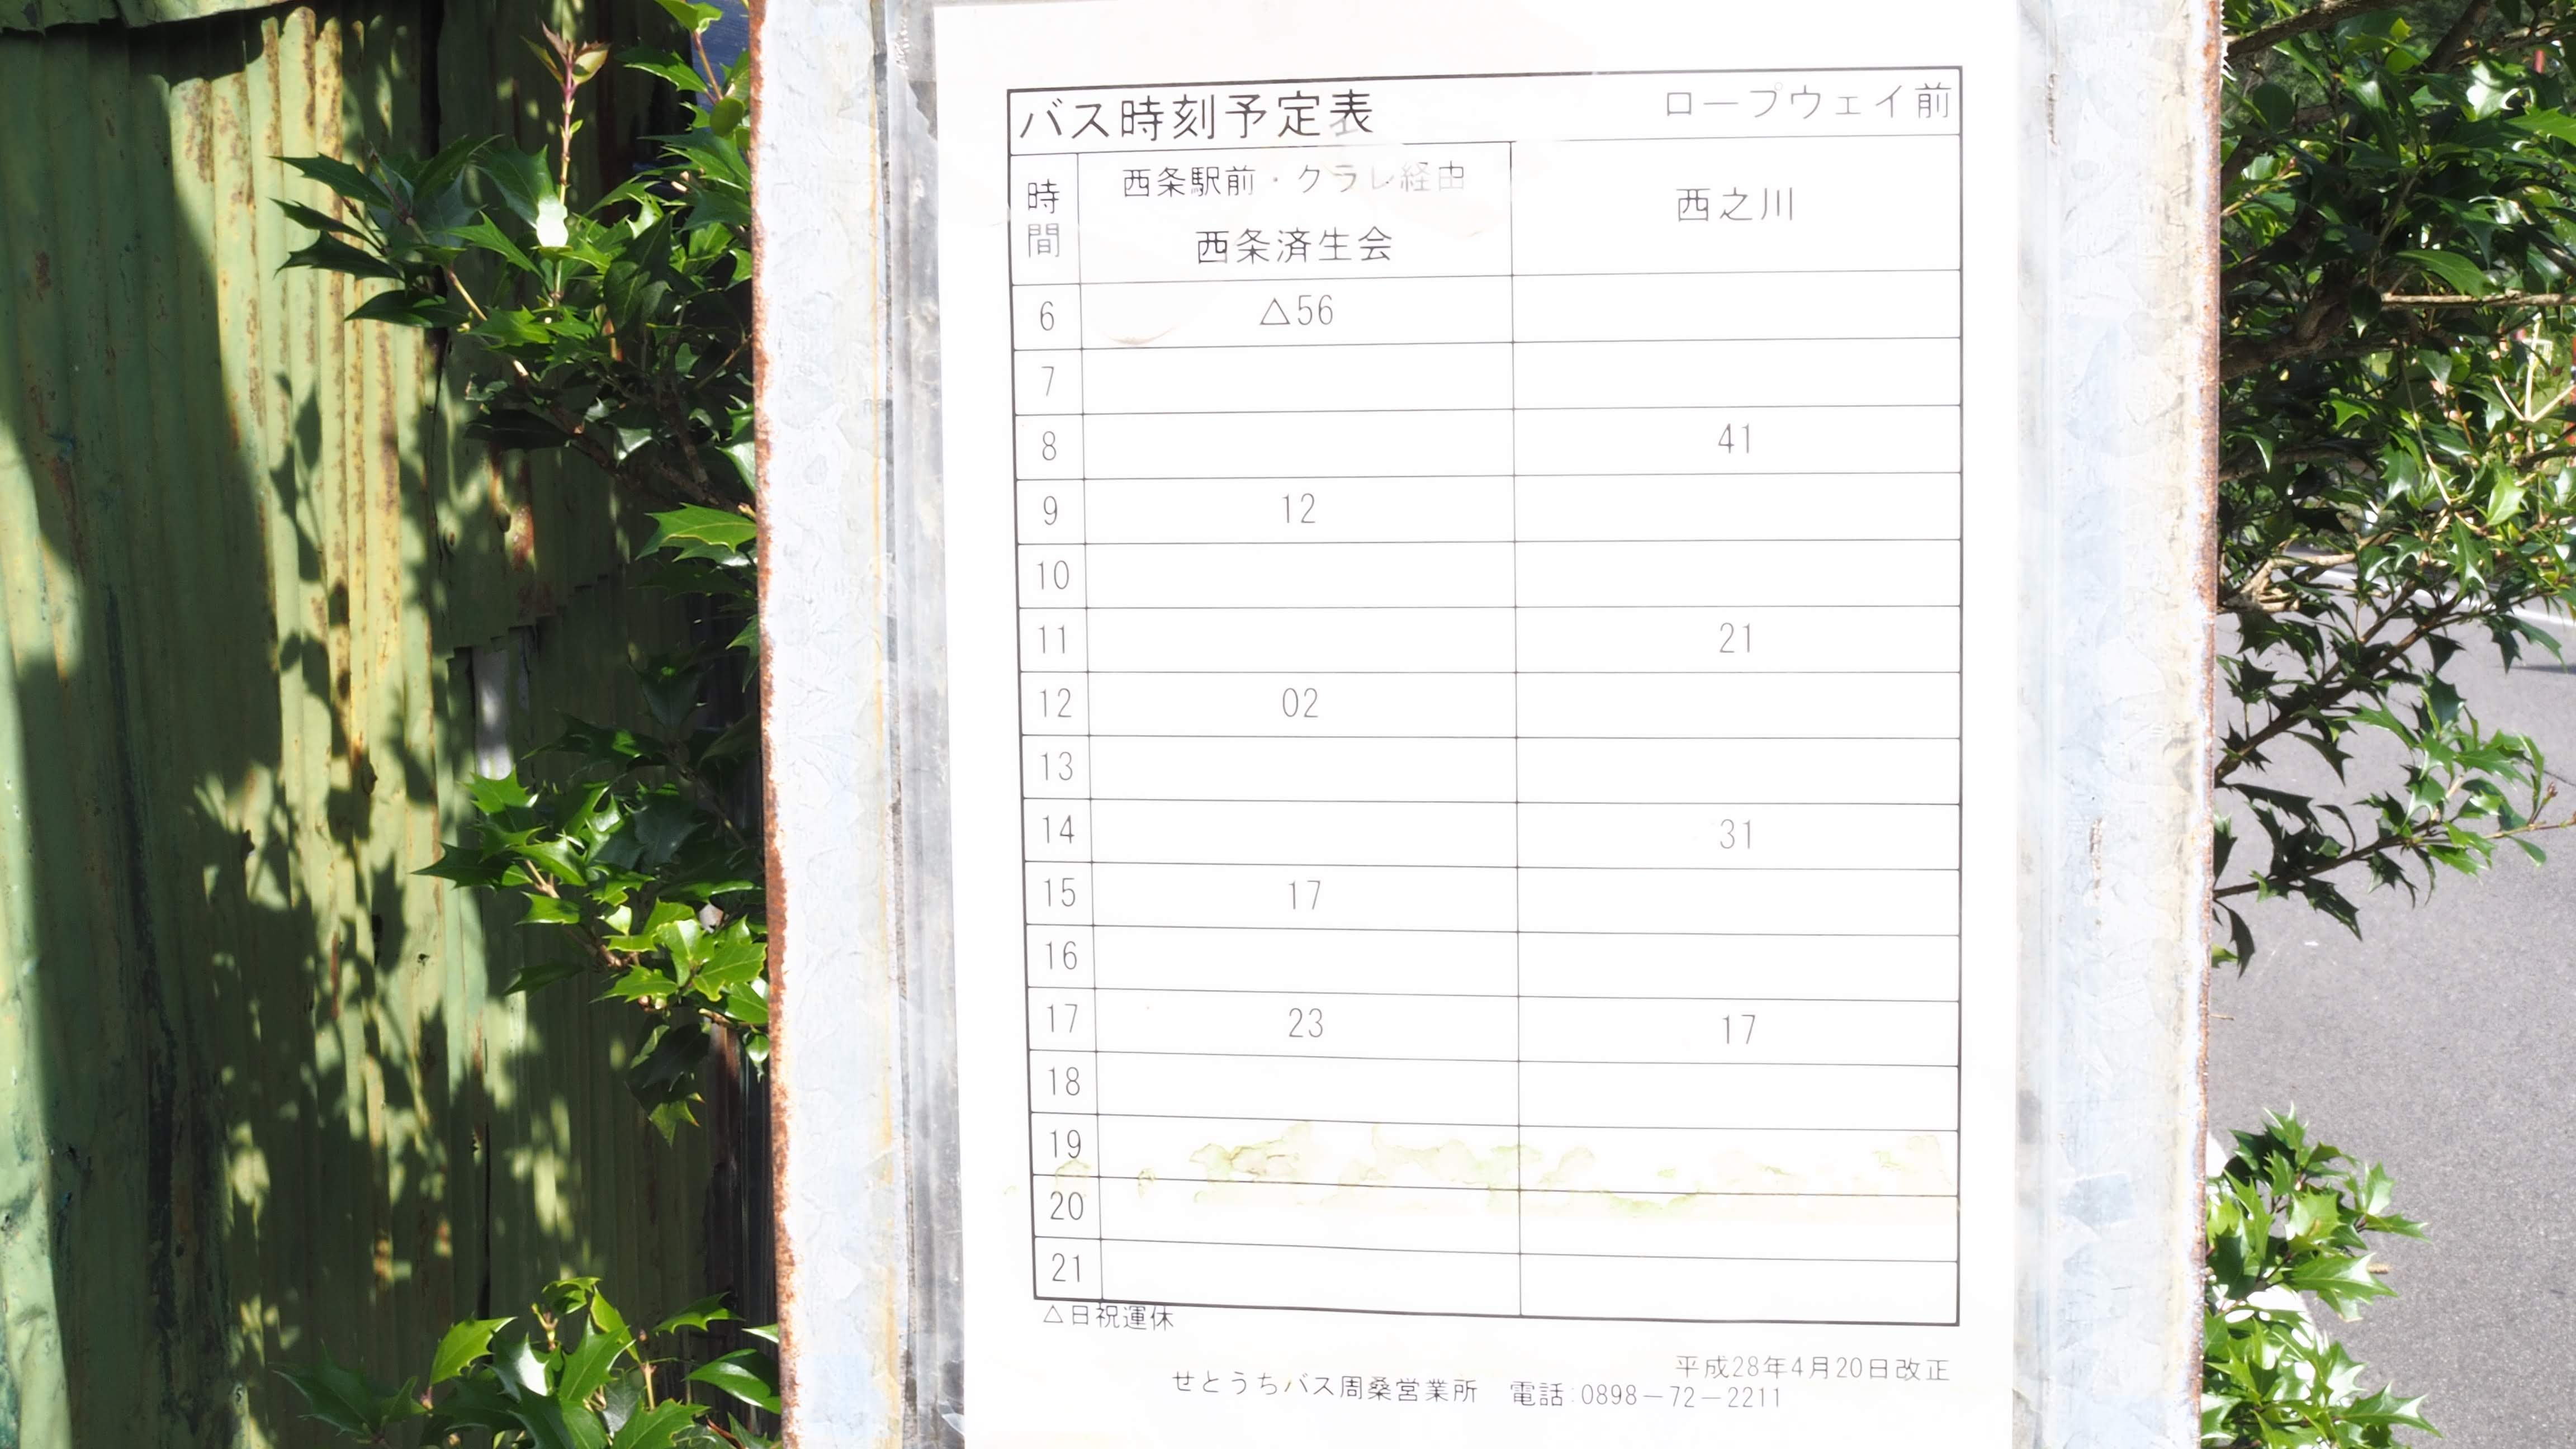 バス時刻予定表 ロープウェイ前
時間 西条駅前・クラレ経由 西条済生会 西之川
6 △56
7
8 41
9 12
10
11 21
12 02
13
14 31
15 17
16
17 23 17
18
19
20
21
△日祝運休
平成28年4月20日改正
せとうちバス周桑営業所 電話:0898-72-2211